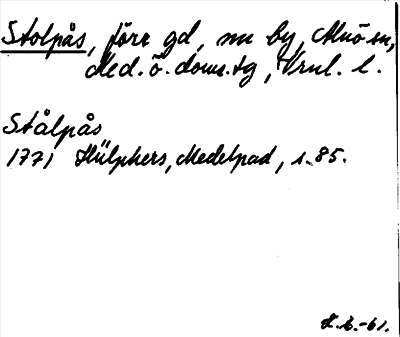 Stolpås, förr gd, nu by, Alnö sn,
Med. ö. doms.tg, Vrnl. l.
Stålpås
1771 Hülphers, Medelpad, s. 85.
-61.